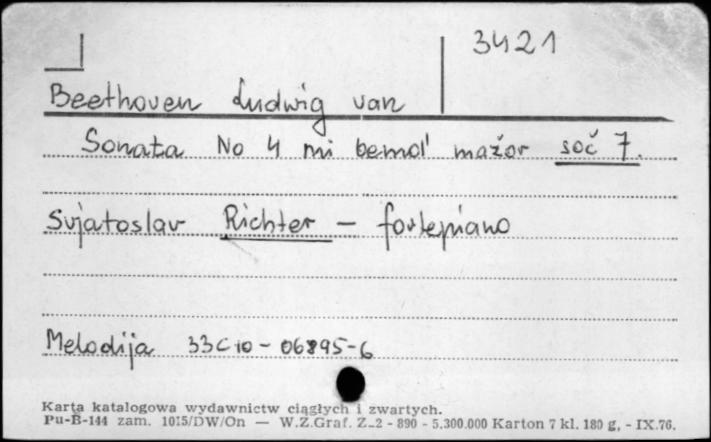 3421
Beethoven Ludwig van
Sonata No 4 mi bemol' mažor soč 7.
Svjatoslav Richter - fortepiano
Melodija 33C10-06895-6
Karta katalogowa wydawnictw ciągłych i zwartych.
Pu-B-144 zam. 1015/DW/On — W.Z.Graf. Z-2 - 890 - 5.300.000 Karton 7 kl. 180 g, - IX.76.